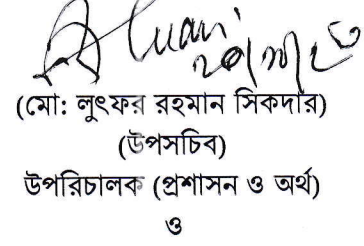 (মো: লুৎফর রহমান সিকদার)
(উপসচিব)
উপরিচালক (প্রশাসন ও অর্থ)
ও